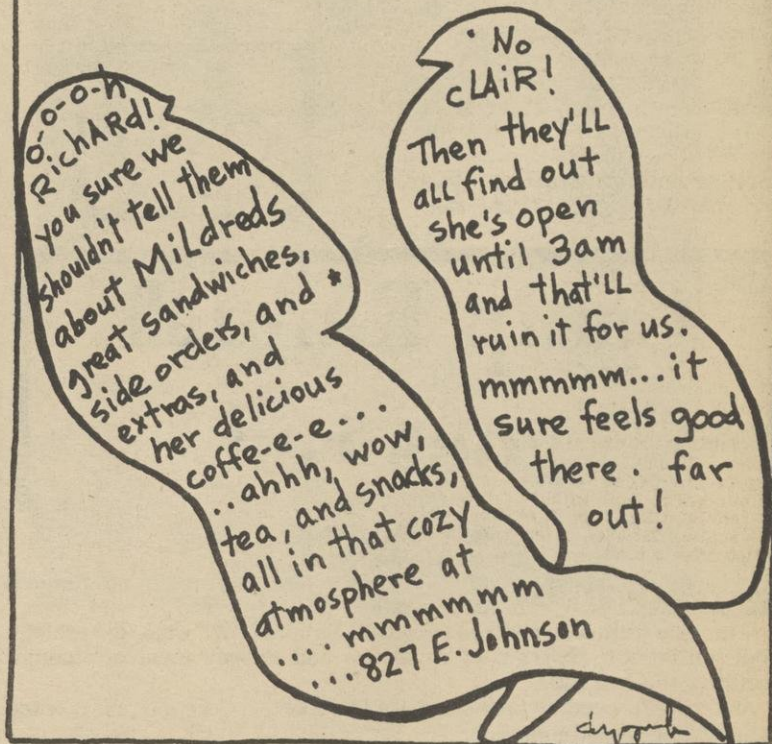 o-o-o-h
RichARd!
you sure we
shouldn't tell them
about MiLdreds
great sandwiches,
side orders, and *
extras, and
her delicious
coffe-e-e...
..ahhh, wow,
tea, and snacks,
all in that cozy
atmosphere at
.... mmmmmm
...827 E. Johnson
No
cLAiR!
Then they'LL
aLL find out
she's open
until 3am
and that'LL
ruin it for us.
mmmmm...it
sure feels good
there. far
out!